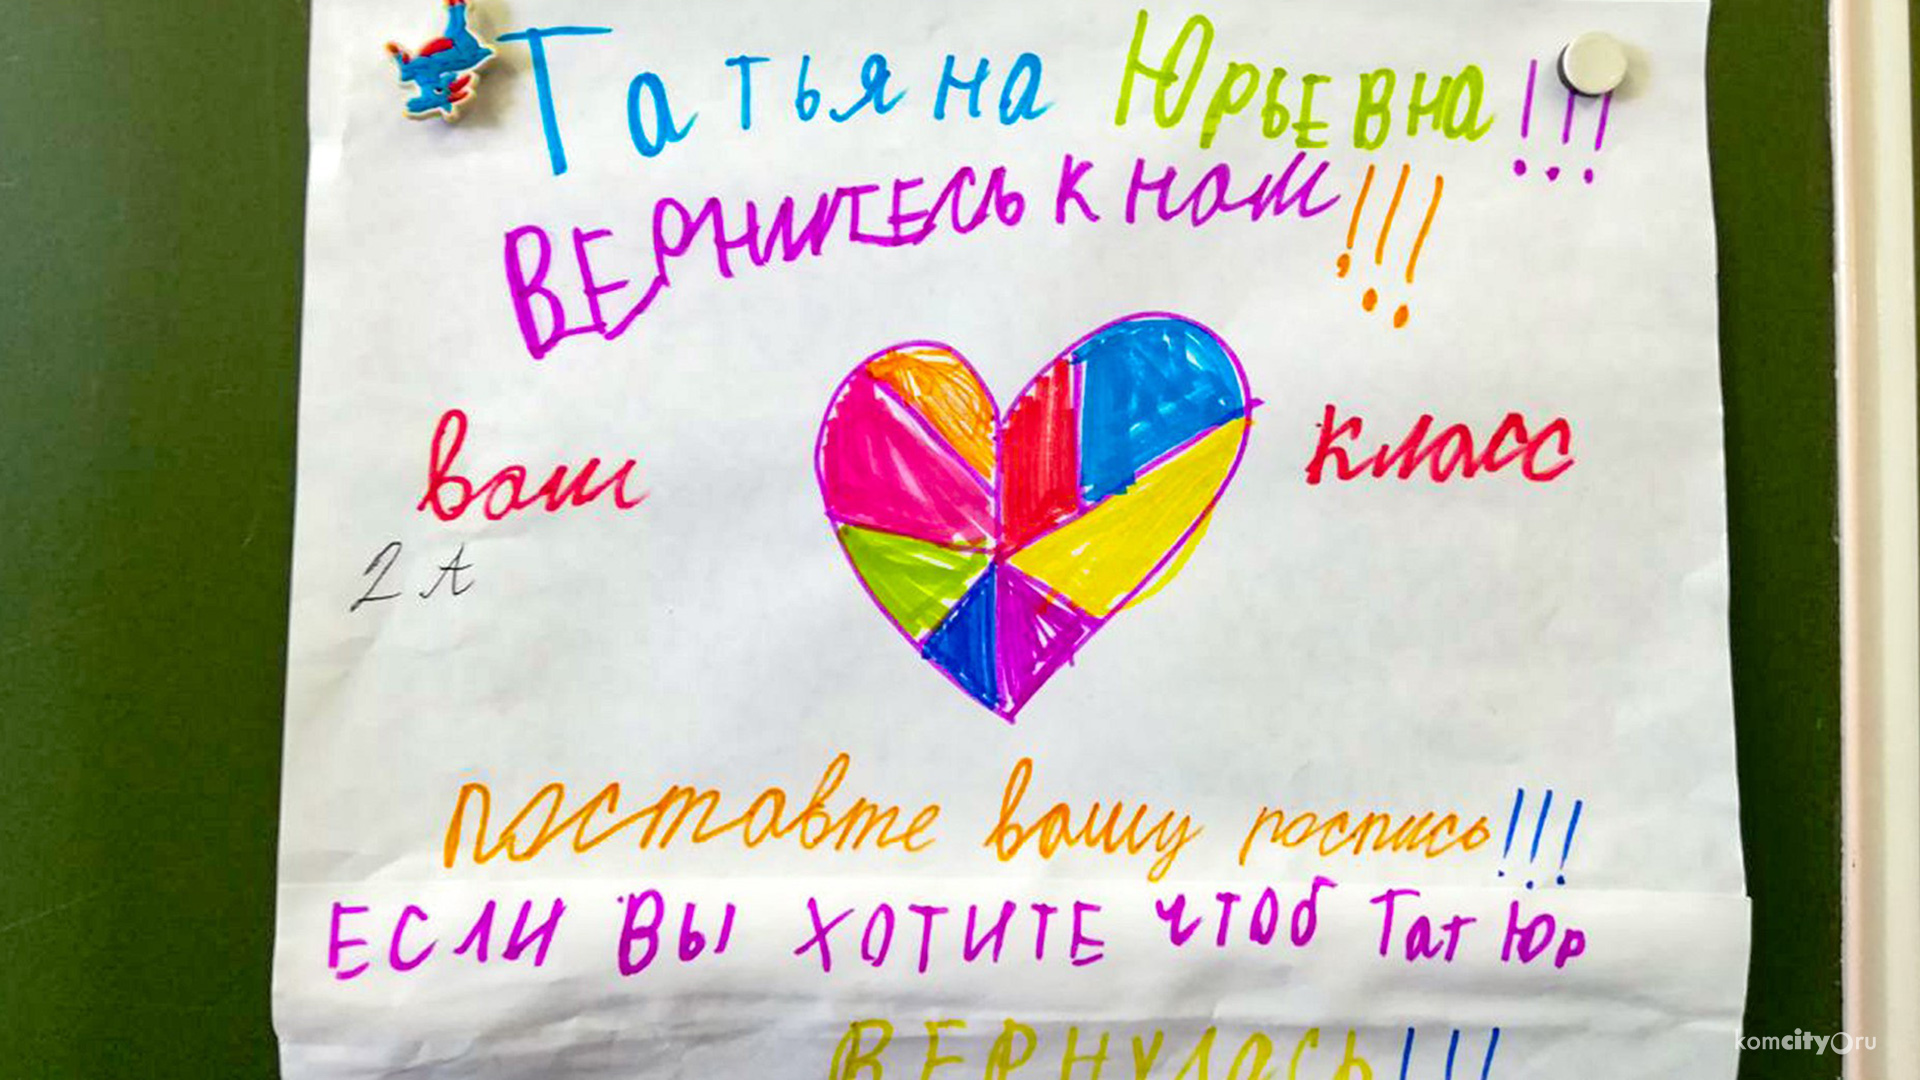 Татьяна Юрьевна!!!
ВЕРНИТЕСЬ К нам!!!
ваш класс
2 А
поставте вашу роспись!!!
ЕСЛИ ВЫ ХОТИТЕ чтоб Тат Юр
ВЕРНУЛАСЬ!!!
komcity.ru